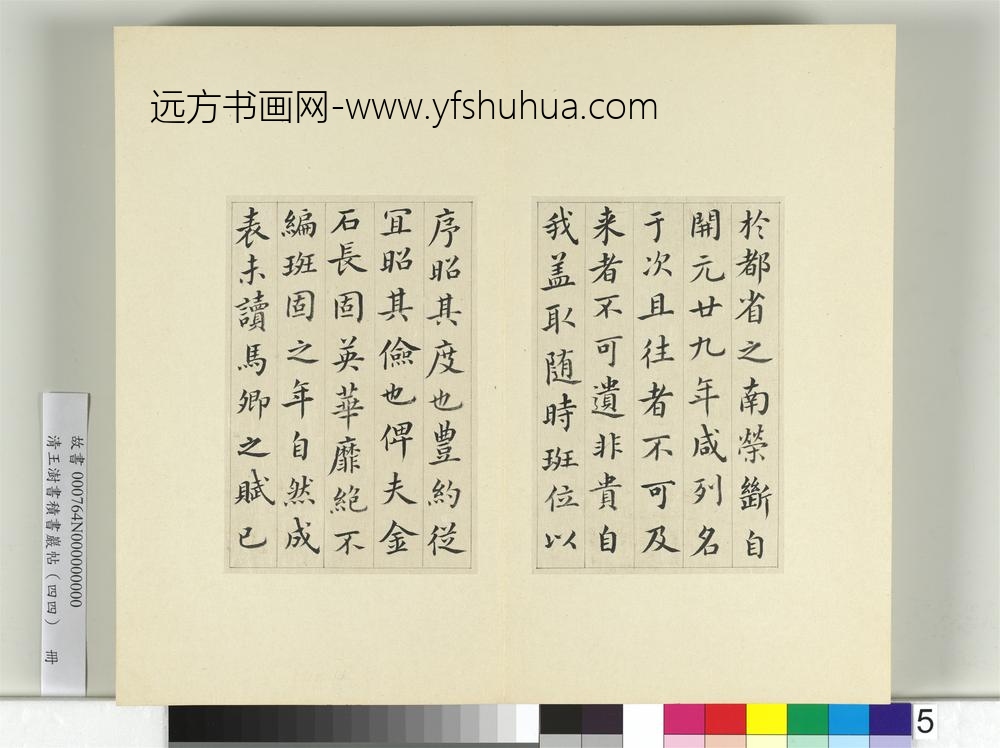 远方书画网-www.yfshuhua.com
於都省之南榮斷自
開元廿九年咸列名
于次且往者不可及
来者不可遺非貴自
我盖取随時班位以
序昭其度也豊約從
冝昭其儉也俾夫金
石長固英華靡絕不
編班固之年自然成
表未讀馬卿之賦已
故書 000764N000000000
清王澍書積書巖帖(四四) 冊
5